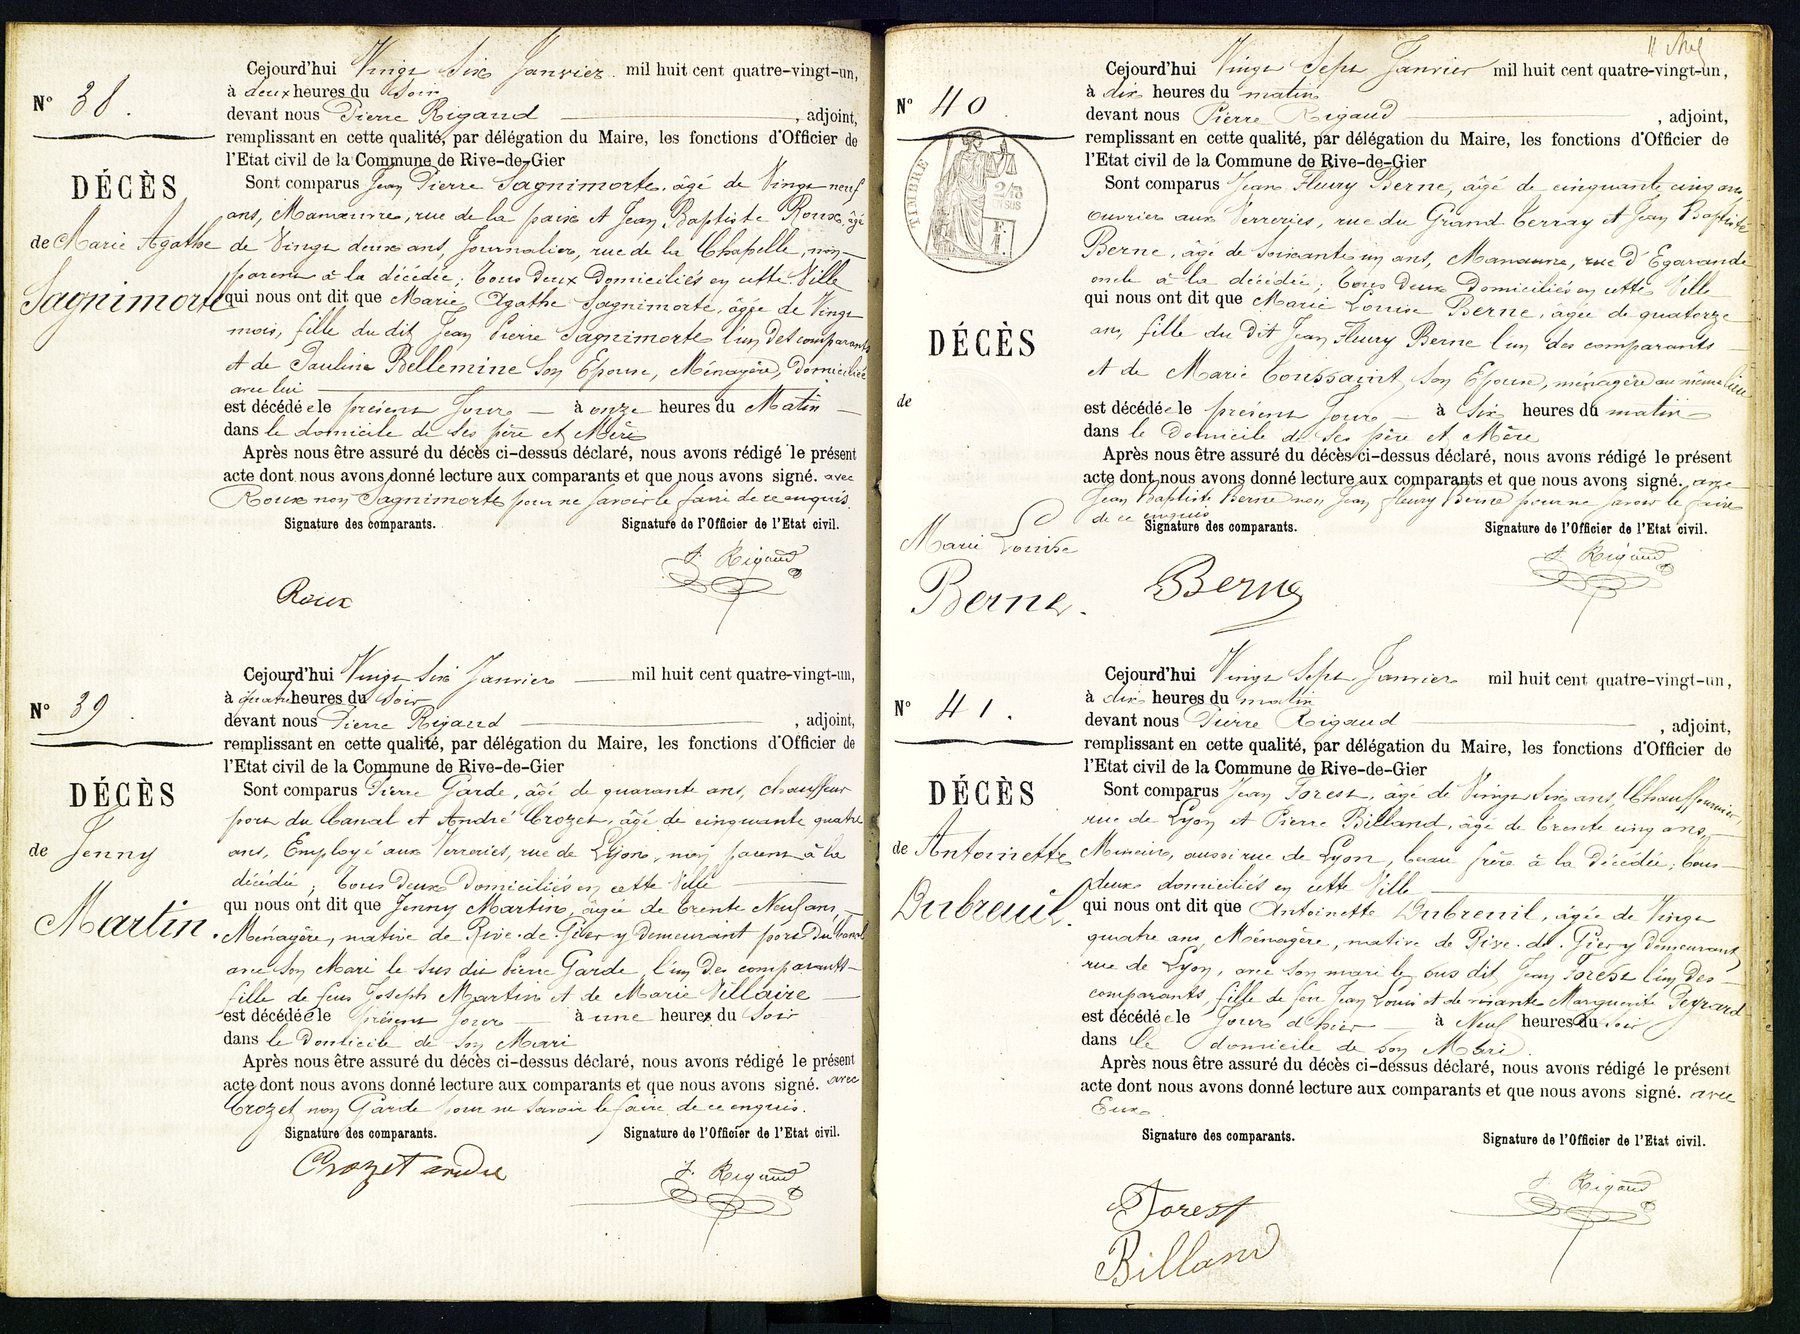 Cejourd'hui Vingt Six Janvier mil huit cent quatre-vingt-un,
à deux heures du Soir
N° 38.
devant nous Pierre Rigaud, adjoint,
remplissant en cette qualité, par délégation du Maire, les fonctions d'Officier de
l'Etat civil de la Commune de Rive-de-Gier
DÉCÈS
de Marie Agathe
Sagnimorte
Sont comparus Jean Pierre Sagnimorte, âgé de Vingt neuf
ans, Manœuvre, rue de la paix et Jean Baptiste Roux, âgé
de Vingt deux ans, Journalier, rue de la Chapelle, non
parent à la décédée; tous deux Domiciliés en cette Ville
qui nous ont dit que Marie Agathe Sagnimorte, âgée de Vingt
mois, fille du dit Jean Pierre Sagnimorte l'un des comparants
et de Pauline Bellemine Son Epouse, Ménagère, Domiciliée
avec lui
est décédée le présent Jour à onze heures du Matin
dans le domicile de Ses père et Mère
Après nous être assuré du décès ci-dessus déclaré, nous avons rédigé le présent
acte dont nous avons donné lecture aux comparants et que nous avons signé. avec
Roux non Sagnimorte pour ne savoir le faire de ce enquis.
Signature des comparants. Signature de l'Officier de l'Etat civil.
P. Rigaud
Roux
Cejourd'hui Vingt Six Janvier mil huit cent quatre-vingt-un,
à quatre heures du Soir
N° 39.
devant nous Pierre Rigaud, adjoint,
remplissant en cette qualité, par délégation du Maire, les fonctions d'Officier de
l'Etat civil de la Commune de Rive-de-Gier
DÉCÈS
de Jenny
Martin.
Sont comparus Pierre Garde, âgé de quarante ans, chauffeur
port du Canal et André Crozet, âgé de cinquante quatre
ans, Employé aux Verreries, rue de Lyon, non parent à la
décédée; tous Deux Domiciliés en cette Ville
qui nous ont dit que Jenny Martin, âgée de trente Neuf ans,
Ménagère, native de Rive-de-Gier y demeurant port du Canal
avec Son Mari le Sus dit Pierre Garde, l'un Des comparants
fille de feus Joseph Martin et de Marie Villaire
est décédée le présent Jour à une heures du Soir
dans le Domicile de Son Mari
Après nous être assuré du décès ci-dessus déclaré, nous avons rédigé le présent
acte dont nous avons donné lecture aux comparants et que nous avons signé. avec
Crozet non Garde pour ne savoir le faire de ce enquis.
Signature des comparants. Signature de l'Officier de l'Etat civil.
Crozet andré
P. Rigaud
Cejourd'hui Vingt Sept Janvier mil huit cent quatre-vingt-un,
à dix heures du matin
N° 40
devant nous Pierre Rigaud, adjoint,
remplissant en cette qualité, par délégation du Maire, les fonctions d'Officier de
l'Etat civil de la Commune de Rive-de-Gier
TIMBRE
DÉCÈS
de
Marie Louise
Berne.
Sont comparus Jean Fleury Berne, âgé de cinquante cinq ans,
ouvrier aux Verreries, rue du Grand Cerray et Jean Baptiste
Berne, âgé de soixante un ans, Manœuvre, rue d'Egarande
oncle à la décédée; tous deux Domiciliés en cette Ville
qui nous ont dit que Marie Louise Berne, âgée de quatorze
ans, fille du Dit Jean Fleury Berne l'un des comparants
et de Marie Toussaint, Son Epouse, ménagère au même lieu
est décédée le présent Jour à Six heures du matin
dans le Domicile de Ses père et Mère
Après nous être assuré du décès ci-dessus déclaré, nous avons rédigé le présent
acte dont nous avons donné lecture aux comparants et que nous avons signé. avec
Jean Baptiste Berne non Jean Fleury Berne pour ne savoir le faire
de ce enquis
Signature des comparants. Signature de l'Officier de l'Etat civil.
P. Rigaud
Berne
Cejourd'hui Vingt Sept Janvier mil huit cent quatre-vingt-un,
à dix heures du matin
N° 41.
devant nous Pierre Rigaud, adjoint,
remplissant en cette qualité, par délégation du Maire, les fonctions d'Officier de
l'Etat civil de la Commune de Rive-de-Gier
DÉCÈS
de Antoinette
Dubreuil.
Sont comparus Jean Forest, âgé de Vingt Six ans, Chauffournier,
rue de Lyon et Pierre Billand, âgé de trente cinq ans,
Mineur, aussi rue de Lyon, beau frère à la Décédée; tous
deux domiciliés en cette Ville
qui nous ont dit que Antoinette Dubreuil, âgée de Vingt
quatre ans, Ménagère, native de Rive-de-Gier y demeurant
rue de Lyon, avec Son mari le sus dit Jean Forest l'un Des
comparants, fille de feu Jean Louis et de vivante Marguerite Peyrard
est décédée le Jour d'hier à Neuf heures du soir
dans le domicile de Son Mari.
Après nous être assuré du décès ci-dessus déclaré, nous avons rédigé le présent
acte dont nous avons donné lecture aux comparants et que nous avons signé. avec
Eux.
Signature des comparants. Signature de l'Officier de l'Etat civil.
P. Rigaud
Forest
Billand